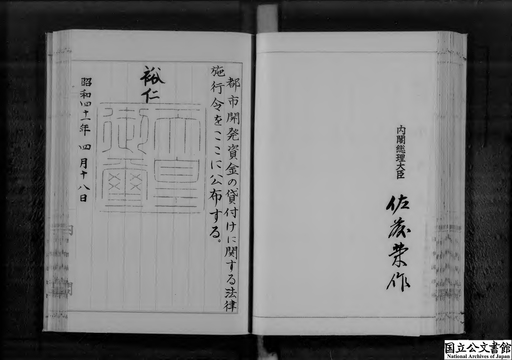 都市開発資金の貸付けに関する法律
施行令をここに公布する。
裕仁
天皇御璽
昭和四十一年四月十八日
内閣総理大臣
佐藤栄作
国立公文書館
National Archives of Japan